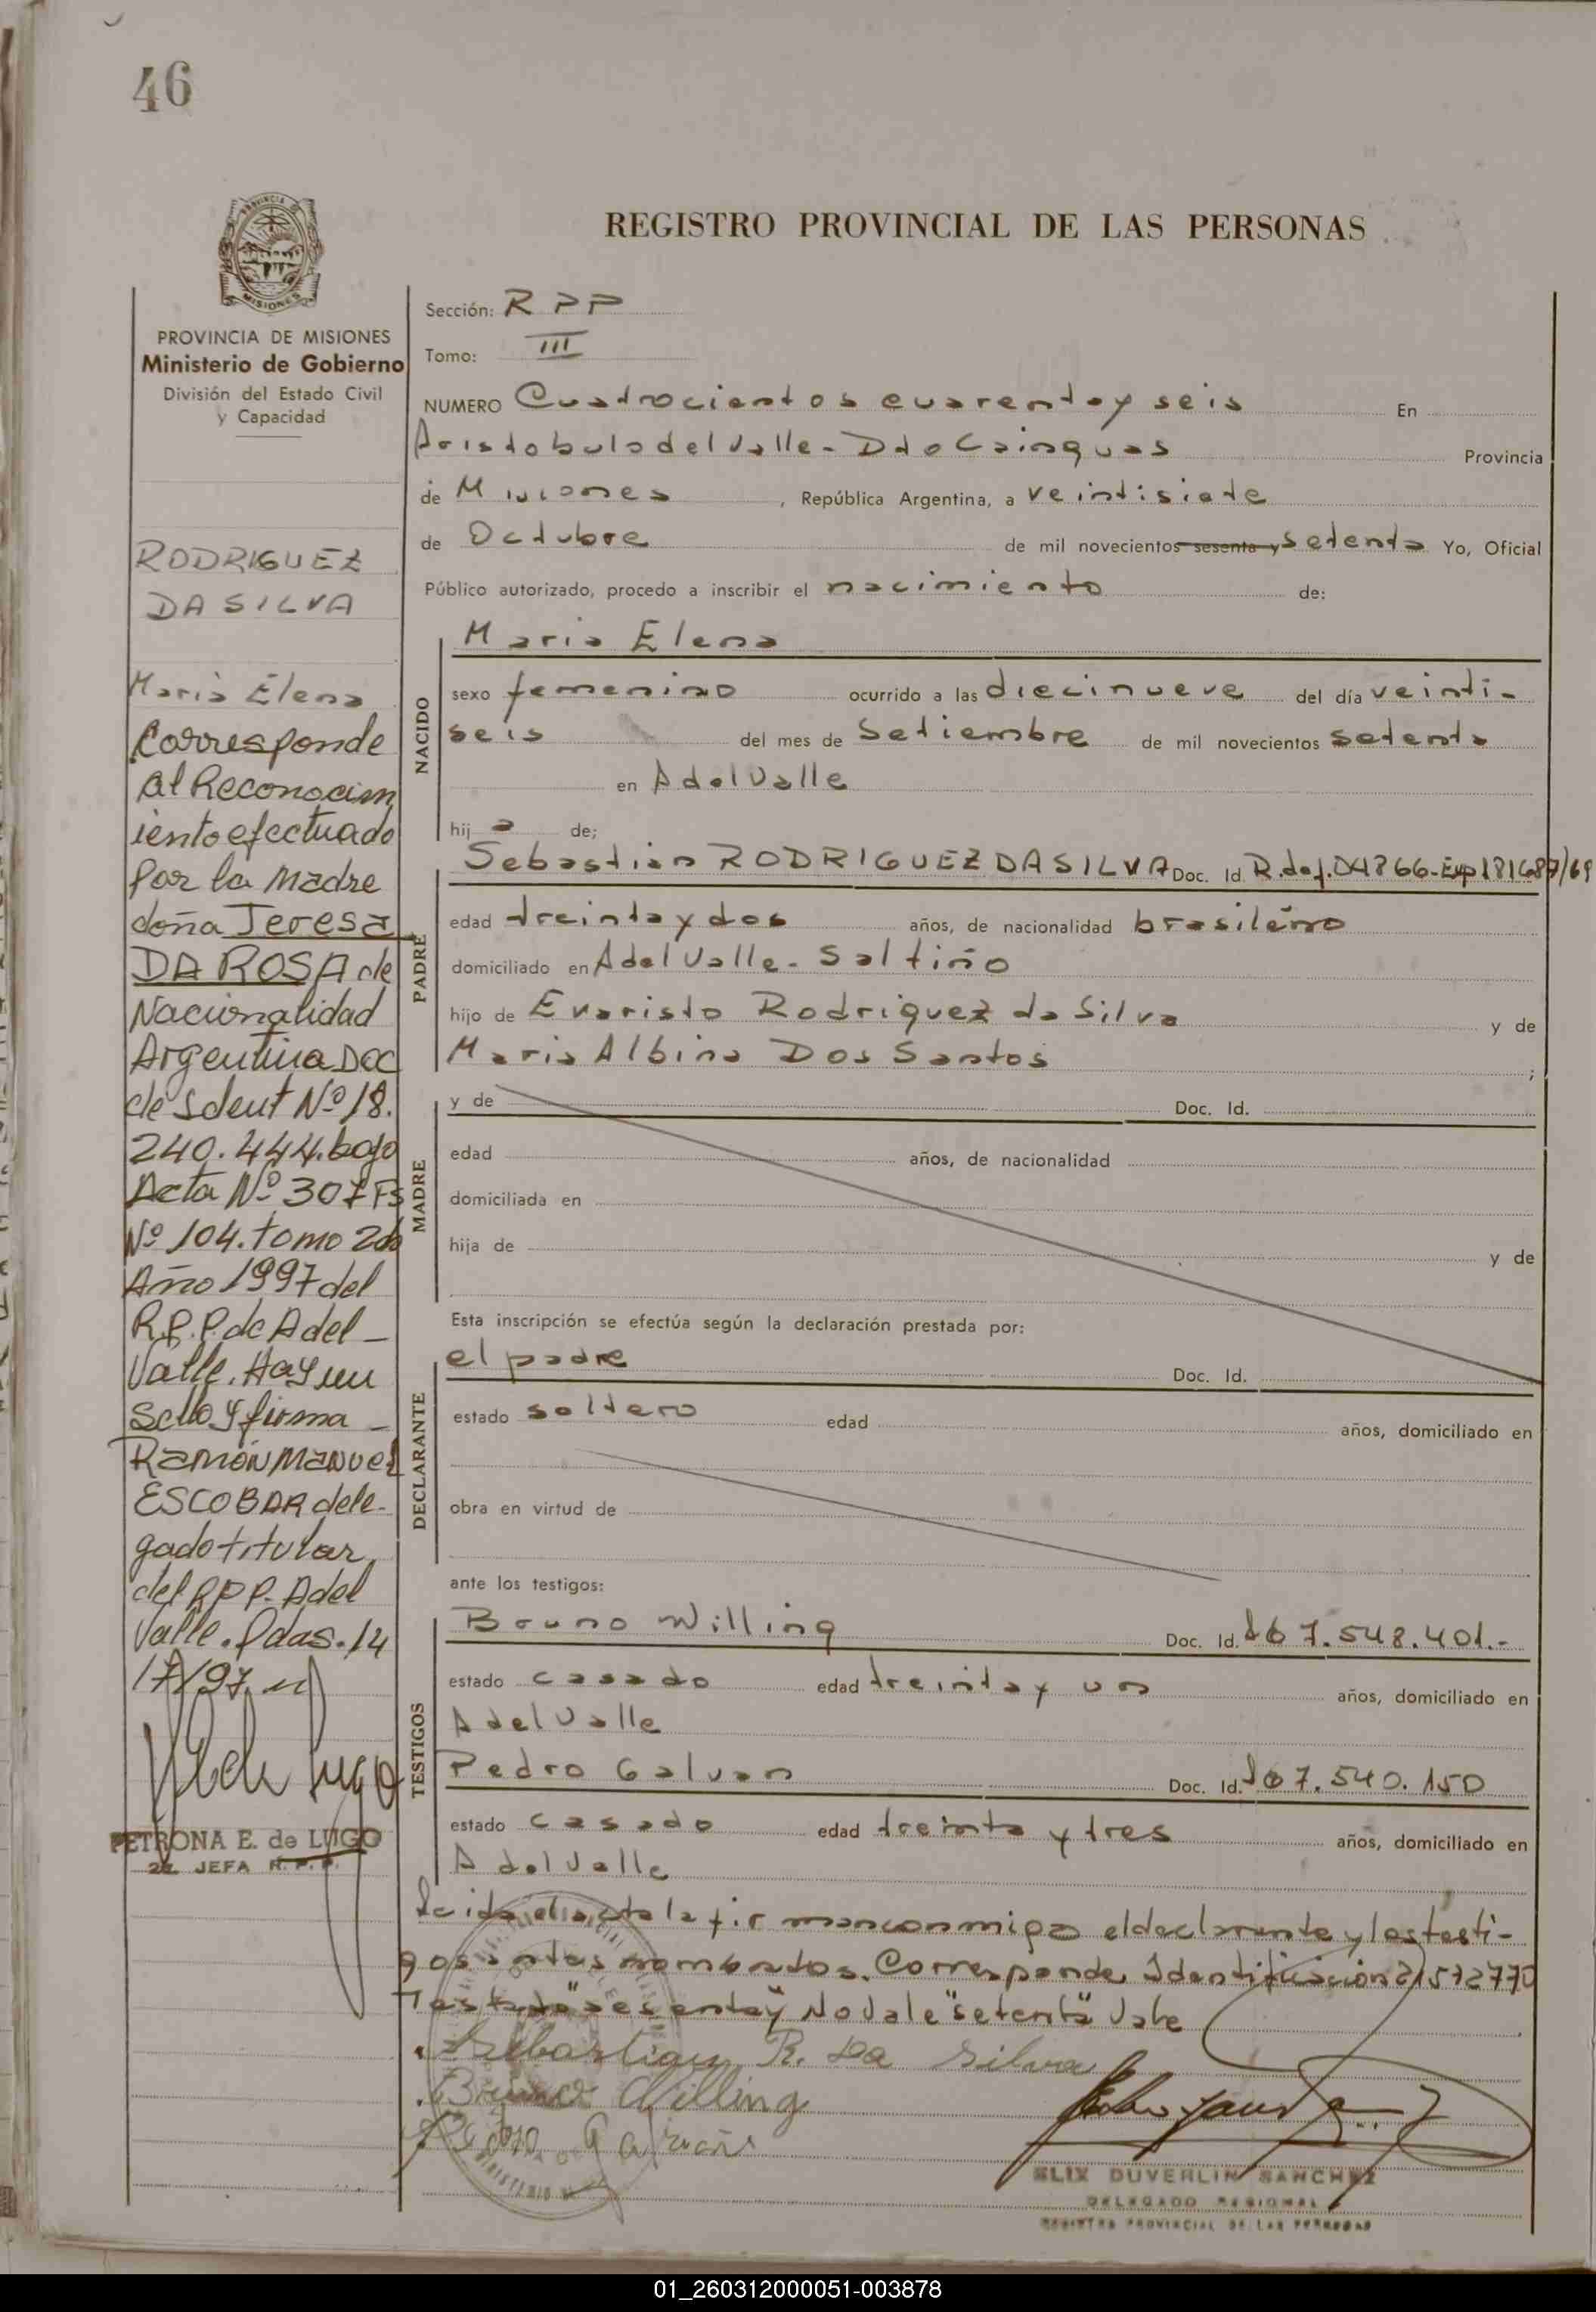 46
REGISTRO PROVINCIAL DE LAS PERSONAS
PROVINCIA DE MISIONES
Ministerio de Gobierno
División del Estado Civil
y Capacidad
RODRIGUEZ
DA SILVA
Maria Elena
Corresponde
al Reconocim
iento efectuado
Por la Madre
doña Teresa
DA ROSA de
Nacionalidad
Argentina Doc
de Ident Nº 18.
240.444. bajo
Acta Nº 307 Fs
Nº 104. tomo 2do
Año 1997 del
R.P.P. de A del
Valle. Hay un
Sello y firma
Ramón Manuel
ESCOBAR dele-
gado titular
del RPP. A del
Valle. Pdas. 14
17/97
PETRONA E. de LUGO
JEFA R.P.P.
Sección: R P P
Tomo: III
NUMERO Cuatrocientos cuarenta y seis En
Aristobulo del Valle - Dto Cainguas Provincia
de Misiones, República Argentina, a veintisiete
de Octubre de mil novecientos sesenta y setenta Yo, Oficial
Público autorizado, procedo a inscribir el nacimiento de:
NACIDO
Maria Elena
sexo femenino ocurrido a las diecinueve del día veinti-
seis del mes de Setiembre de mil novecientos setenta
en A del Valle
hij a de;
PADRE
Sebastian RODRIGUEZ DA SILVA Doc. Id. R.def. 04866-Exp 181687/69
edad treinta y dos años, de nacionalidad brasileño
domiciliado en A del Valle - Saltiño
hijo de Evaristo Rodriguez da Silva y de
Maria Albina Dos Santos ;
MADRE
y de Doc. Id.
edad años, de nacionalidad
domiciliada en
hija de y de
Esta inscripción se efectúa según la declaración prestada por:
DECLARANTE
el padre Doc. Id.
estado soltero edad años, domiciliado en
obra en virtud de
ante los testigos:
TESTIGOS
Bruno Willing Doc. Id. 7.548.401.-
estado casado edad treinta y un años, domiciliado en
A del Valle
Pedro Galvan Doc. Id. 7.540.150
estado casado edad treinta y tres años, domiciliado en
A del Valle
Leida el acta la firman conmigo el declarante y los testi-
gos antes nombrados. Corresponde Identificación 21572770
Testado "sesenta y" No Vale "setenta" Vale
Sebastian R. Da Silva
Bruno Willing
Pedro Galvan
ELIX DUVERLIN SANCHEZ
DELEGADO REGIONAL
REGISTRO PROVINCIAL DE LAS PERSONAS
01_260312000051-003878